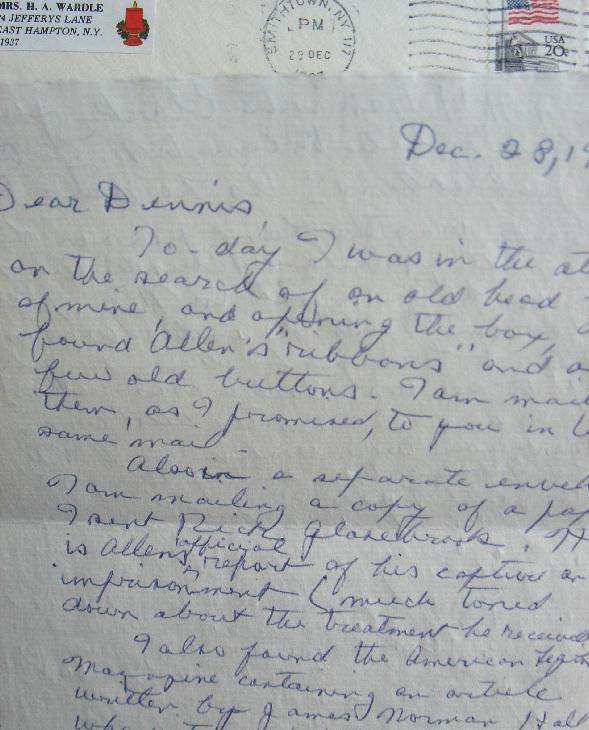 MRS. H. A. WARDLE
4 JEFFERYS LANE
EAST HAMPTON, N.Y.
1937
SMITHTOWN, NY 117
PM
29 DEC
USA
20c
Dec. 28, 19
Dear Dennis,
To-day I was in the at
on the search of an old bead
of mine, and opening the box,
found Allen's "ribbons" and a
few old buttons. I am mail
them, as I promised, to you in
same mail
Also in a separate envel
I am mailing a copy of a pap
I sent Rick Glasebrook.
is Allen's official report of his capture an
imprisonment (much toned
down about the treatment he received
I also found the American Legion
Magazine containing an article
written by James Norman Hall